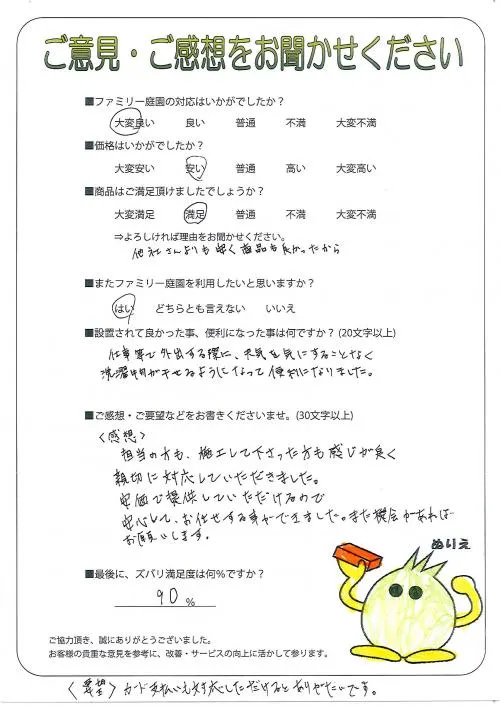 ご意見・ご感想をお聞かせください
■ファミリー庭園の対応はいかがでしたか？
大変良い 良い 普通 不満 大変不満
■価格はいかがでしたか？
大変安い 安い 普通 高い 大変高い
■商品はご満足頂けましたでしょうか？
大変満足 満足 普通 不満 大変不満
⇒よろしければ理由をお聞かせください。
他社さんよりも安く商品も良かったから
■またファミリー庭園を利用したいと思いますか？
はい どちらとも言えない いいえ
■設置されて良かった事、便利になった事は何ですか？(20文字以上)
仕事等で外出する際に、天気を気にすることなく
洗濯物が干せるようになって便利になりました。
■ご感想・ご要望などをお書きくださいませ。(30文字以上)
〈感想〉
担当の方も、施工して下さった方も感じが良く
親切に対応していただきました。
安価で提供していただけるので
安心して、お任せする事ができました。また機会があれば
お願いします。
ぬりえ
■最後に、ズバリ満足度は何%ですか？
90 %
ご協力頂き、誠にありがとうございました。
お客様の貴重な意見を参考に、改善・サービスの向上に活かして参ります。
〈要望〉 カード支払いも対応しただけるとありがたいです。